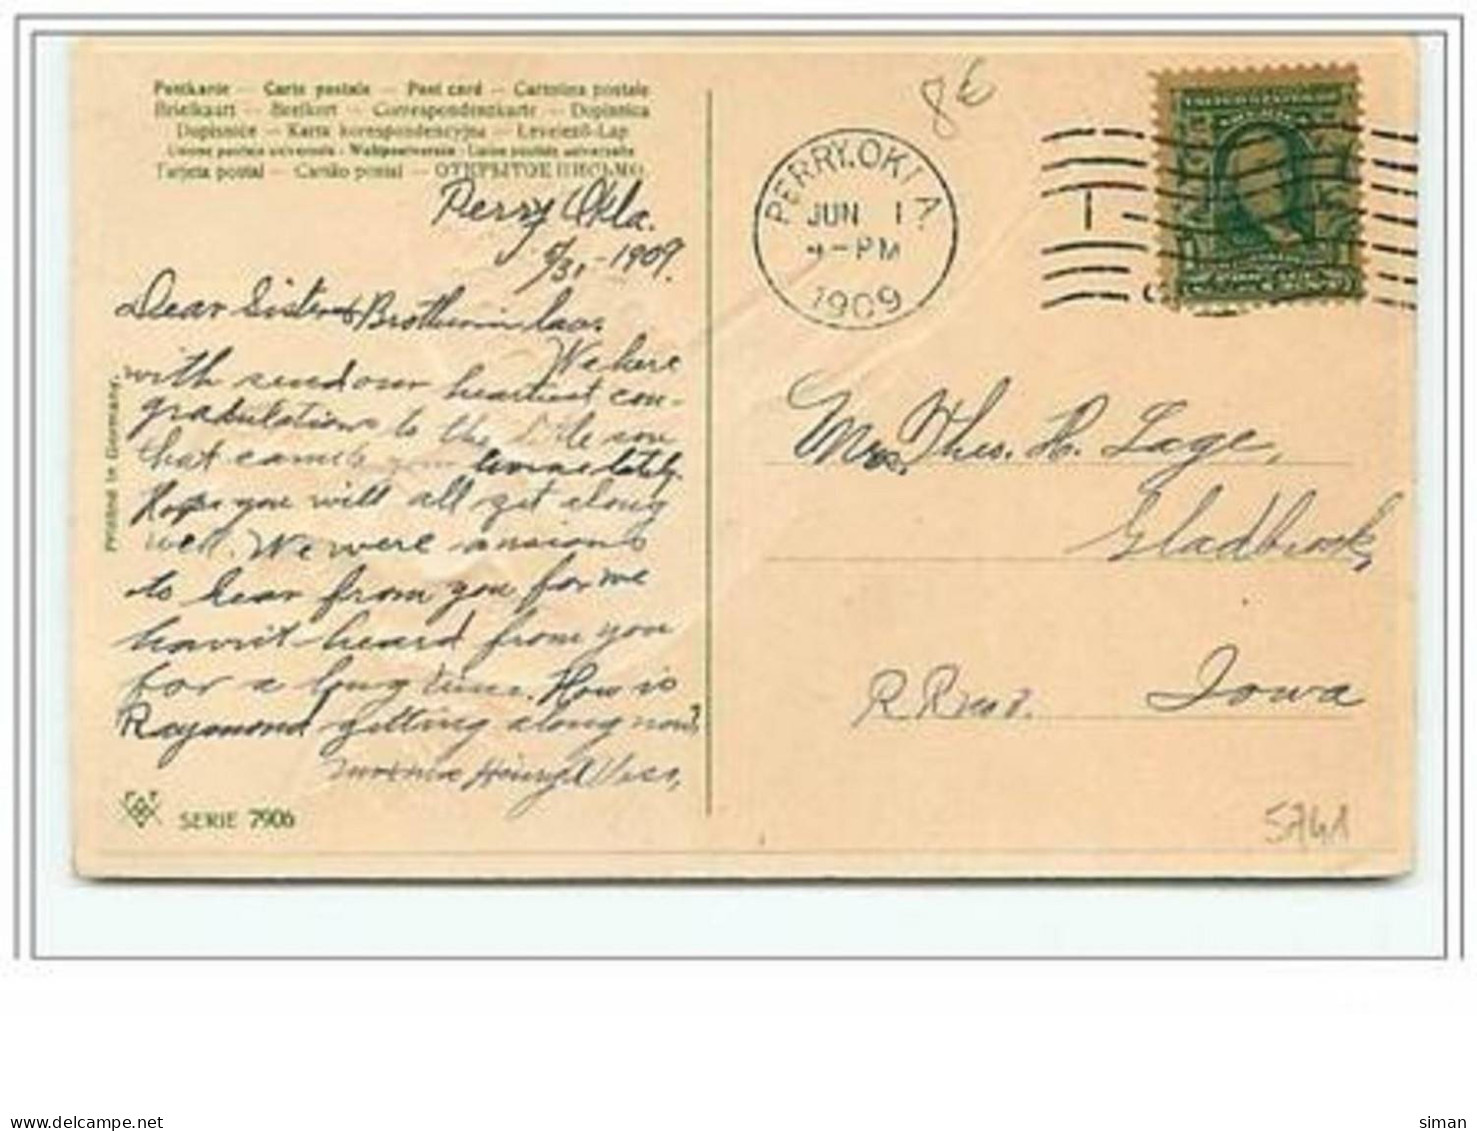 Postkarte – Carte postale – Post card – Cartolina postale
Briefkaart – Brefkort – Correspondenzkarte – Dopisnica
Dopisnice – Karta korespondencyjna – Levelező-Lap
Unione postale universale - Weltpostverein - Union postale universelle
Tarjeta postal – Cartão postal – ОТКРЫТОЕ ПИСЬМО.
Perry Okla.
5/31-1909.
Dear Sister & Brother in law.
We here
with send our heartiest con-
gratulations to the little son
that came to your home lately.
Hope you will all get along
well. We were anxious
to hear from you for we
havn't heard from you
for a long time. How is
Raymond getting along now?
Printed in Germany.
SERIE 7906
8€
PERRY, OKLA.
JUN 1
4-PM
1909
1
UNITED STATES OF
AMERICA
Mrs. Theo. H. Lage,
Gladbrook,
Iowa
R.R. no.
5741
siman